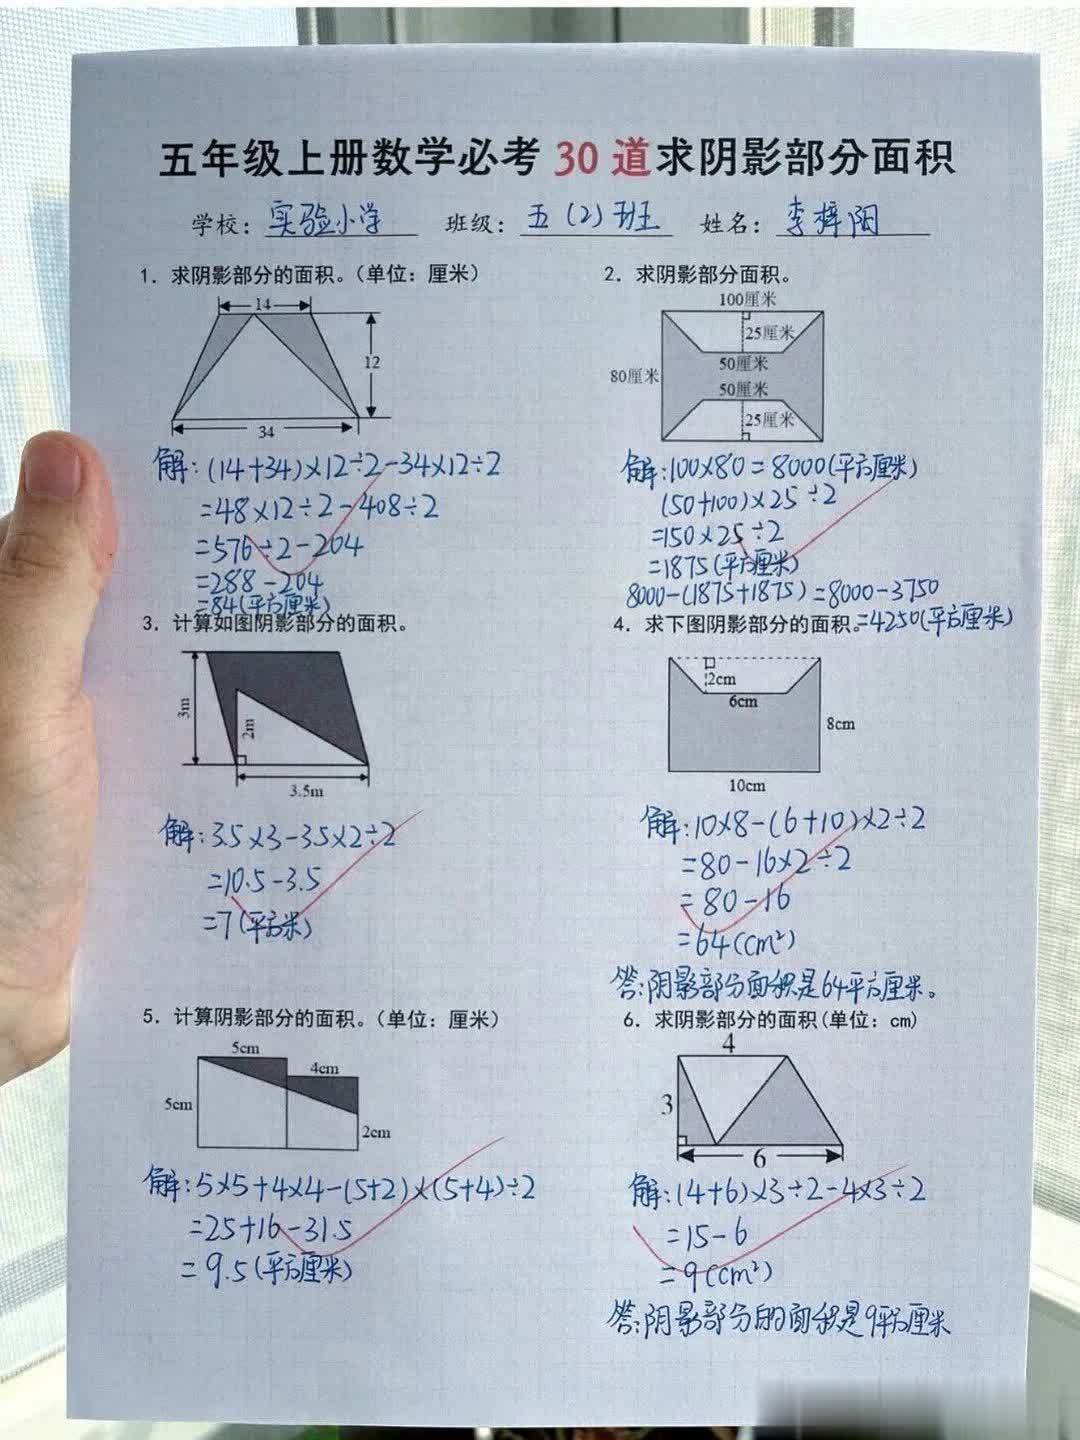 五年级上册数学必考30道求阴影部分面积
学校：实验小学 班级：五（2）班 姓名：李梓阳
1. 求阴影部分的面积。（单位：厘米）
14
12
34
解：(14+34)×12÷2-34×12÷2
=48×12÷2-408÷2
=576÷2-204
=288-204
=84(平方厘米)
2. 求阴影部分面积。
100厘米
25厘米
50厘米
80厘米
50厘米
25厘米
解：100×80=8000(平方厘米)
(50+100)×25÷2
=150×25÷2
=1875(平方厘米)
8000-(1875+1875)=8000-3750
=4250(平方厘米)
3. 计算如图阴影部分的面积。
3m
2m
3.5m
解：3.5×3-3.5×2÷2
=10.5-3.5
=7(平方米)
4. 求下图阴影部分的面积。
2cm
6cm
8cm
10cm
解：10×8-(6+10)×2÷2
=80-16×2÷2
=80-16
=64(cm²)
答：阴影部分面积是64平方厘米。
5. 计算阴影部分的面积。（单位：厘米）
5cm
4cm
5cm
2cm
解：5×5+4×4-(5+2)×(5+4)÷2
=25+16-31.5
=9.5(平方厘米)
6. 求阴影部分的面积(单位：cm)
4
3
6
解：(4+6)×3÷2-4×3÷2
=15-6
=9(cm²)
答：阴影部分的面积是9平方厘米